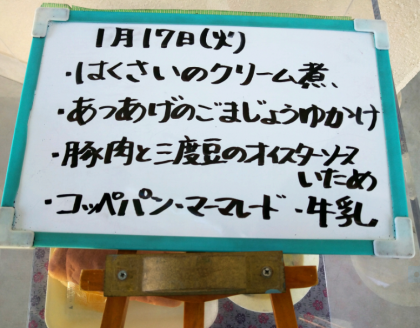 1月17日(火)
・はくさいのクリーム煮、
・あつあげのごまじょうゆかけ
・豚肉と三度豆のオイスターソース
いため
・コッペパン・マーマレード・牛乳